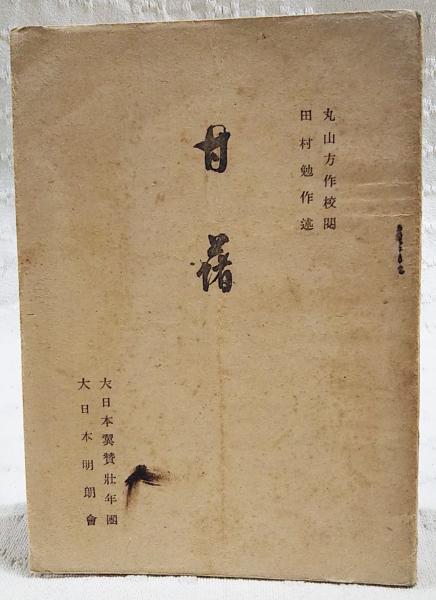 丸山方作校閲
田村勉作述
甘藷
大日本翼賛壯年團
大日本明朗會